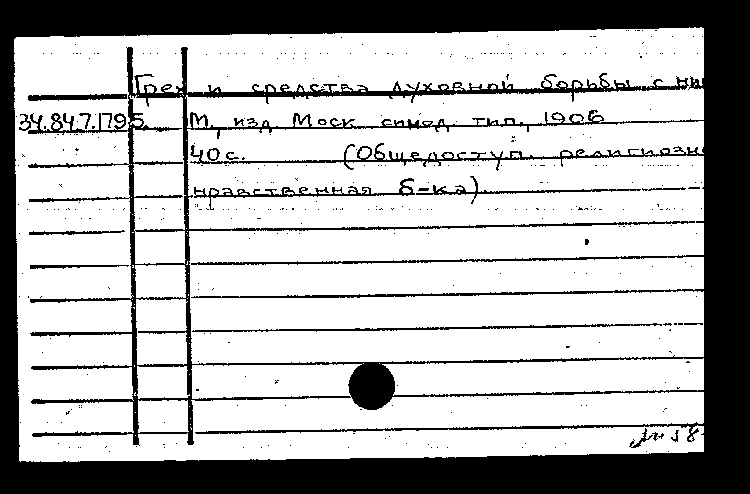 Грех и средства духовной борьбы с ни
34.84.7.1795. М., изд. Моск. синод. тип., 1906
40 с. (Общедоступ. религиозно
нравственная б-ка).